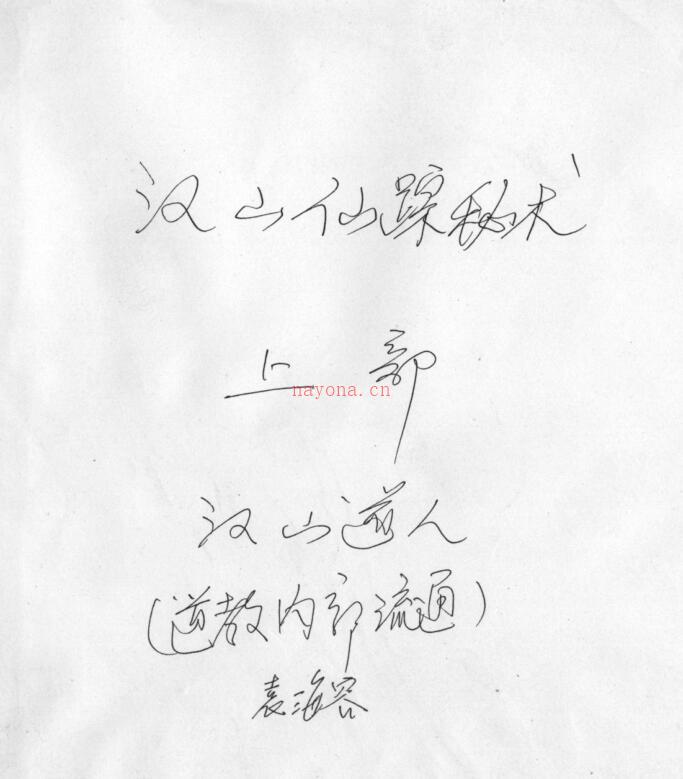 汉山仙踪秘术
上部
nayona.cn
汉山道人
(道教内部流通)
袁海容